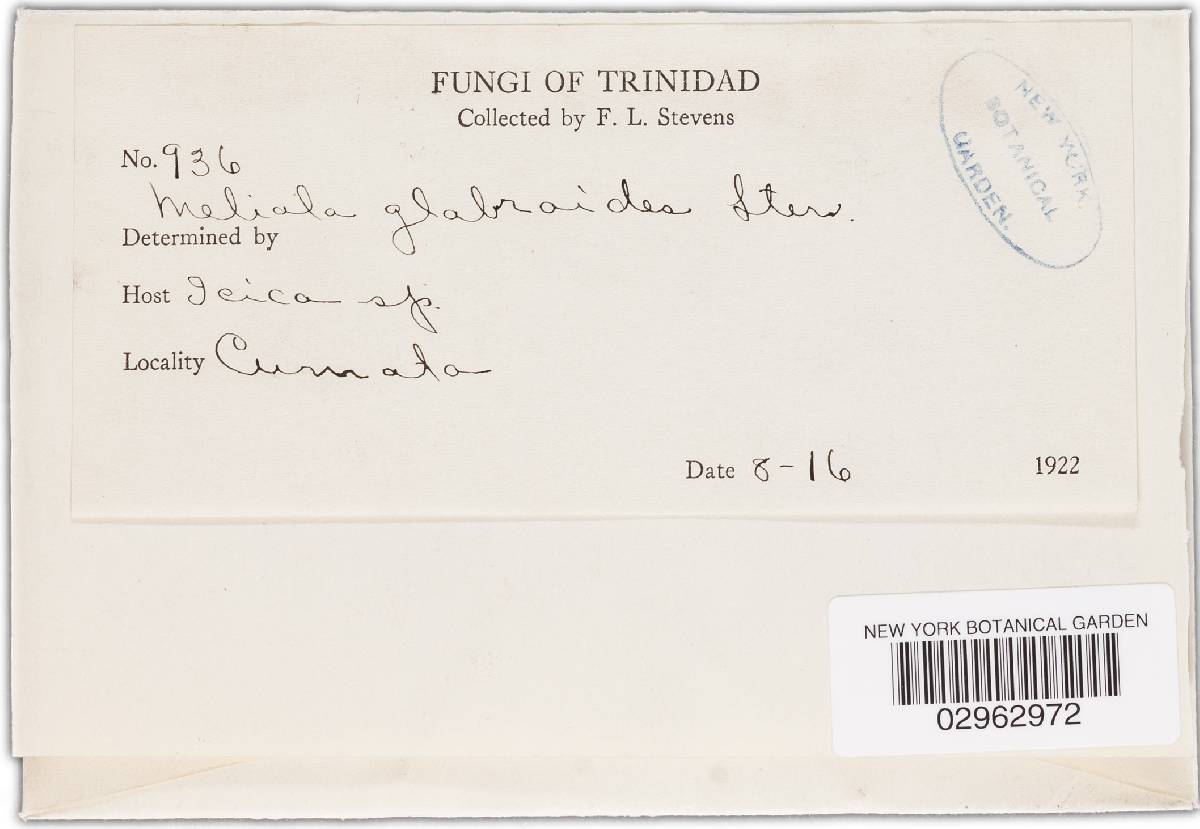 FUNGI OF TRINIDAD
Collected by F. L. Stevens
NEW YORK
BOTANICAL
GARDEN.
No. 936
Meliola glabroides Stev.
Determined by
Host Icica sp.
Locality Cumata
Date 8-16 1922
NEW YORK BOTANICAL GARDEN
02962972